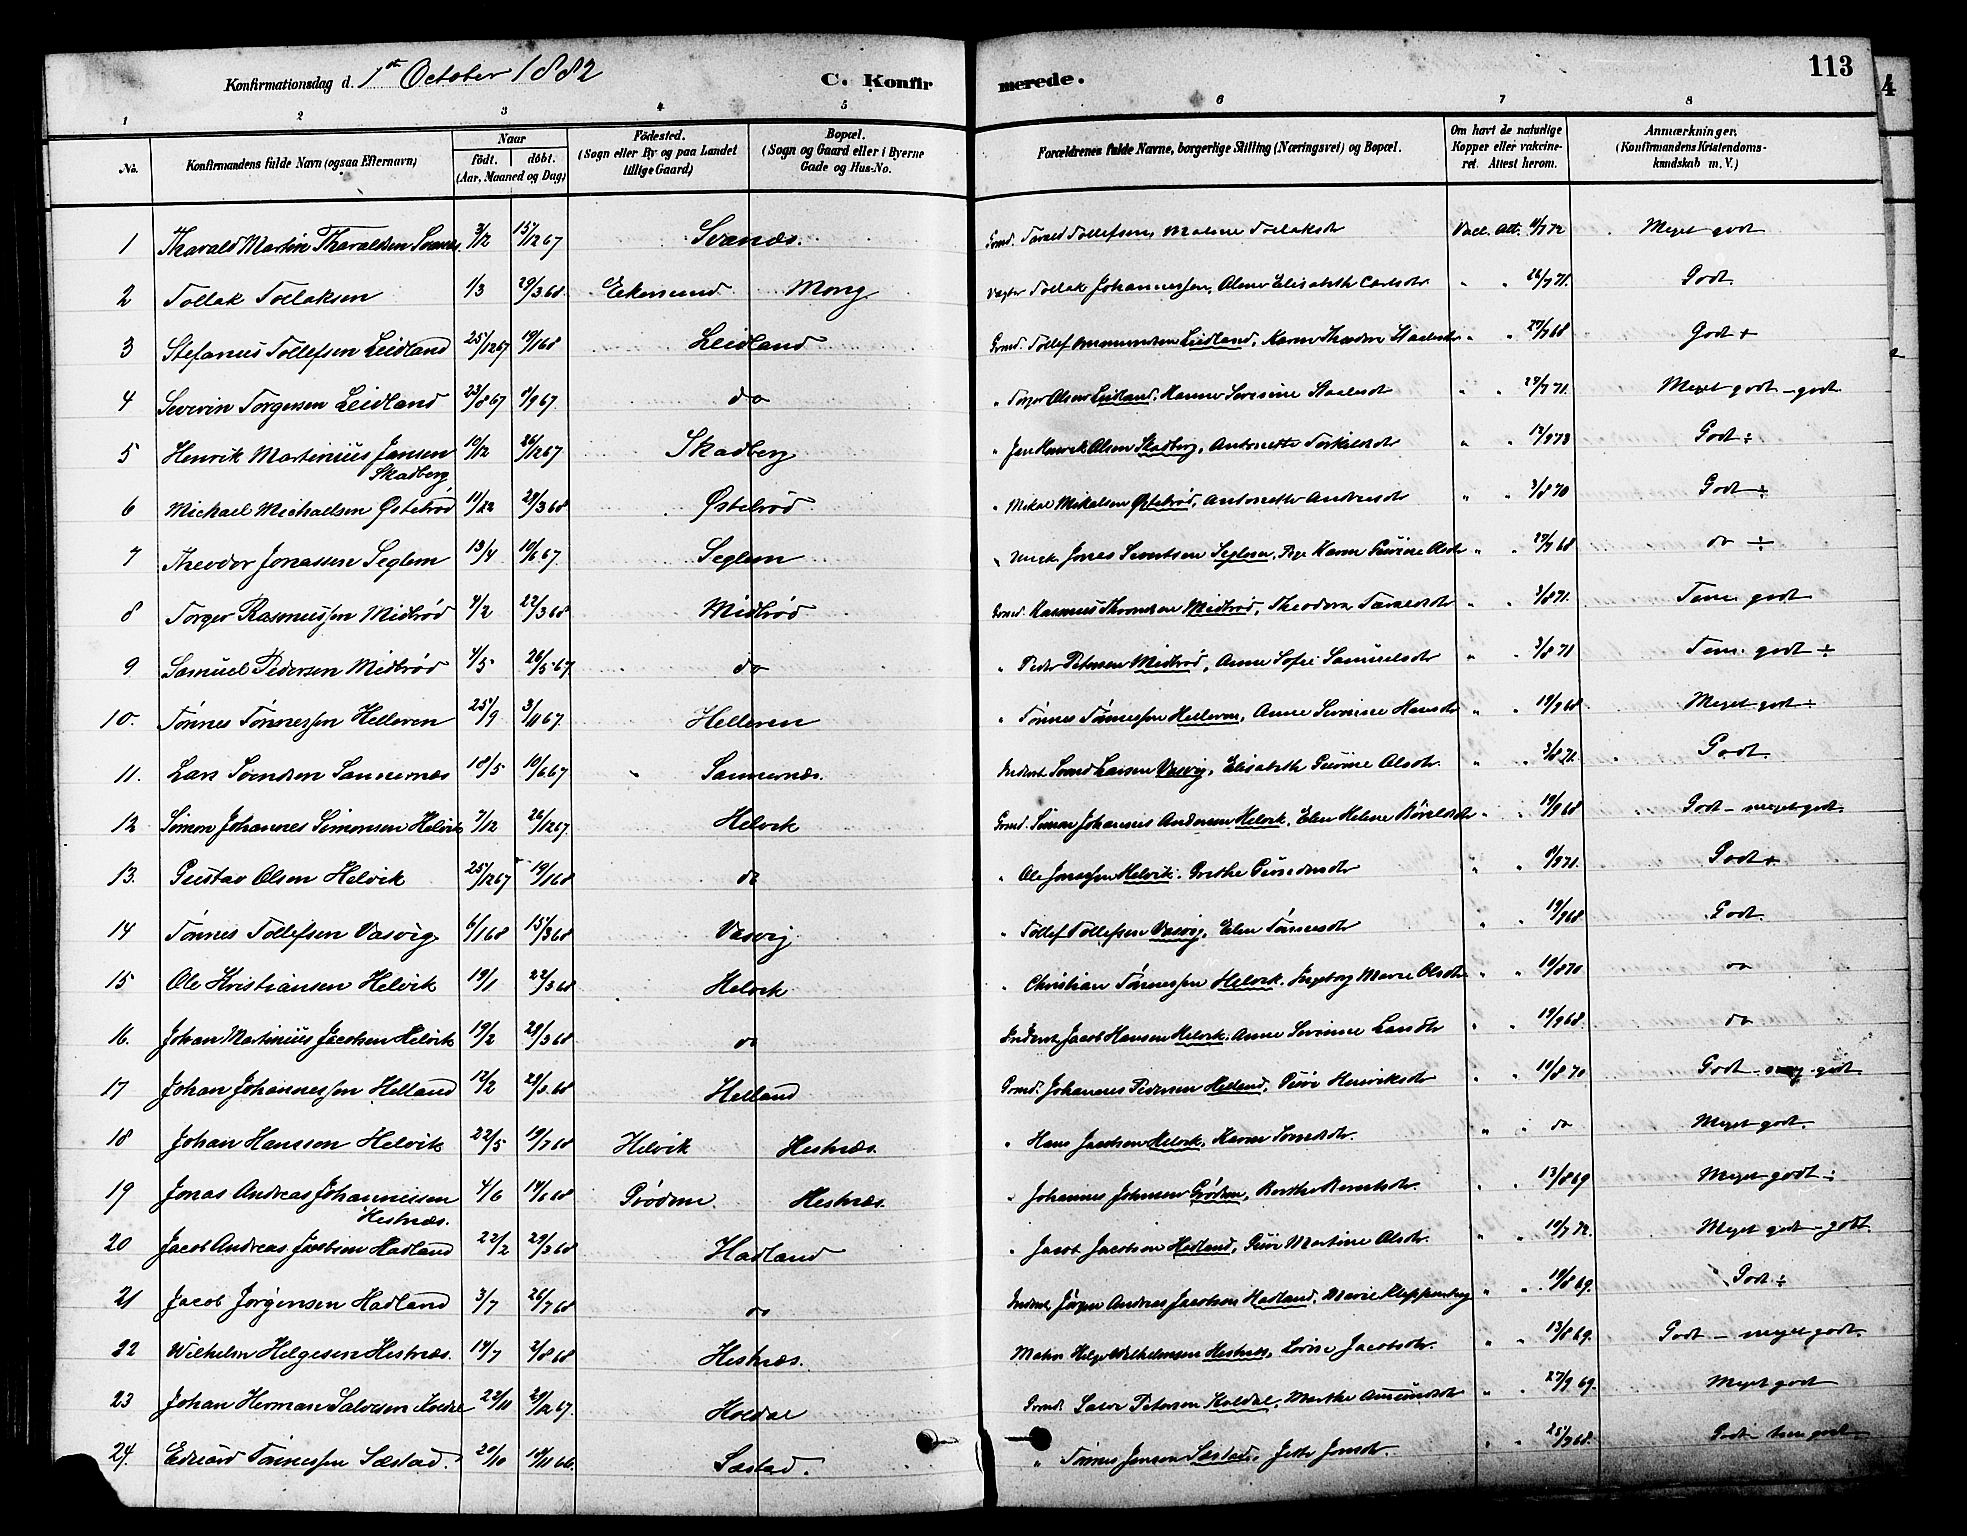 Konfirmationsdag d. 1ste October 1882 C. Konfir merede. 113
1 2 3 4 5 6 7 8
No. Konfirmandens fulde Navn (ogsaa Efternavn) Naar födt. döbt. (Aar, Maaned og Dag) Födested. (Sogn eller By og paa Landet tillige Gaard) Bopæl. (Sogn og Gaard eller i Byerne Gade og Hus-No. Forældrenes fulde Navne, borgerlige Stilling (Næringsvei) og Bopæl. Om havt de naturlige Kopper eller vakcineret. Attest herom. Anmærkninger. (Konfirmandens Kristendomskundskab m. V.)
1 Tharald Martin Tharaldsen 3/12 15/12 67 Svanæs. Tarald Tollefsen, Malene Tollaksdr Vacc. Att. Meget godt
2 Tollak Tollaksen 1/3 29/3 68 Ekersund Mong Tollak Johannessen, Elisabeth Carlsdr " " 26/7 71. Godt.
3 Stefanus Tollefsen Leidland 25/12 67 19/1 68 Leidland Grmd. Tollef Ommundsen Leidland, Karen " " 27/9 68 Godt +
4 Severin Torgersen Leidland 23/8 67 8/9 67 do " Torger Olsen Leidland, Severine " " 27/7 71. Meget godt - godt
5 Henrik Martinius Jansen Skadberg 10/12 26/12 67 Skadberg " Jan Henrik Olsen Skadberg, Antonette Torkildsdr " " Godt ÷
6 Michael Michaelsen Östebröd 29/3 68 Östebröd. " Mikal Mikalsen Östebröd, Antonette Andreasdr " " 3/8 70 Godt ÷
7 Theodor Jonassen Seglem 13/4 10/6 67 Seglem Jonas Sivertsen Seglem, Pige Karen Gurine Olsdr " " 27/9 68 do ÷
8 Torger Rasmussen Midbröd 4/2 22/3 68 Midbröd Grmd. Rasmus Thronsen Midbröd, Theodora Taraldsdr " " 3/8 71. Tem. godt
9 Samuel Pedersen Midbröd 4/5 26/5 67. do " Peder Petersen Midbröd, Anne Sofie Samuelsdr " " 3/8 71 Tem. godt ÷
10. Tönnes Tönnessen Helleren 25/9 3/11 67 Helleren " Tönnes Tönnessen Helleren, Anne Severine Hansdr " " 19/9 68 Meget godt ÷
11. Lars Svendsen Sannernæs 18/5 10/6 67 Sannernæs. Inderst Svend Larsen Vasvig, Elisabeth Gurine Olsdr. " " 3/8 71. Godt.
12 Simon Johannes Simonsen Helvik 7/12 26/12 67 Helvik Grmd. Simon Johannes Andersen Helvik, Elen Helene " " 19/9 68 Godt - meget godt.
13. Gustav Olsen Helvik 25/12 67 19/1 68 do " Ole Jonassen Helvik, Grethe " " Godt +
14 Tönnes Tollefsen Vasvig 6/1 68 15/3 68 Vasvig " Tollef Tollefsen Vasvig, Elen Tönnesdr " " 19/9 68. Godt.
15 Ole Kristiansen Helvik 19/1 22/3 68 Helvik " Christian Tönnessen Helvik, Ingeborg Marie Olsdr " " 19/8 70 do
16. Johan Martinius Jacobsen Helvik 19/2 29/3 68 do Inderst Jacob Hansen Helvik, Anne Severine " " 19/9 68. do
17 Johan Johannessen Helland 12/2 29/3 68 Helland Grmd. Johannes Pedersen Helland, Henriksdr " " 19/8 70 Godt - meg. godt
18 Johan Hansson Helvik 22/5 19/7 68 Helvik Hestnæs. " Hans Jacobsen Helvik, Karen " " do Meget godt.
19 Jonas Andreas Johannessen Hestnæs. 4/6 14/6 68 Grödem Hestnæs. " Johannes Johnsen Grödem, Berthe Berntsdr. " " 13/8 69 Meget godt ÷
20 Jacob Andreas Jacobsen Hadland 22/2 29/3 68 Hadland " Jacob Jacobsen Hadland, Martine Olsdr. " " 19/7 72. Meget godt - godt.
21 Jacob Jörgensen Hadland 3/7 26/7 68 do Inderst Jörgen Andreas Jacobsen Hadland, Marie " " 19/8 69. Godt ÷
22 Wilhelm Helgesen Hestnæs. 14/7 2/8 68 Hestnæs. Helge Wilhelmsen Hestnæs, Lovise Jacobsdr. " " 13/8 69. Godt - meget godt.
23 Johan Herman Salvesen 22/11 29/12 67. Holdal Grmd. Salve Petersen Holdal, Marthe " " 27/9 69. Meget godt
24. Edvard Tönnessen Sæstad. 20/10 18/11 66. Sæstad. " Tönnes Jensen Sæstad, " " 25/9 68. Godt - tem godt